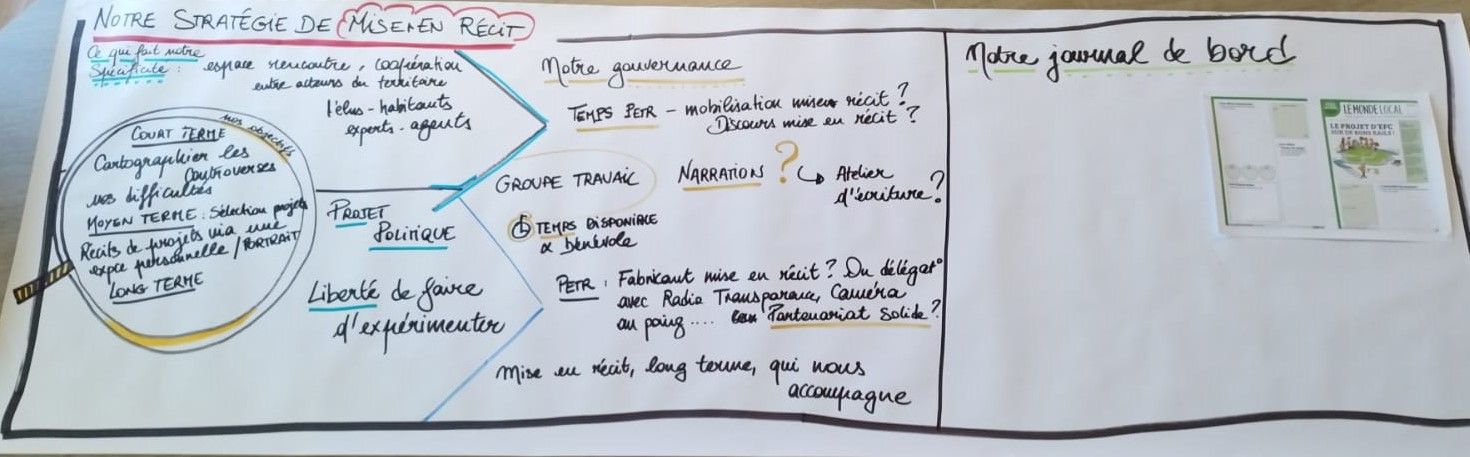 NOTRE STRATÉGIE DE MISE EN RÉCIT
Ce qui fait notre
Spécificité : espace rencontre, coopération
entre acteurs du territoire
l'élus - habitants
experts - agents
nos objectifs
COURT TERME
Cartographier les
controverses
nos difficultés
MOYEN TERME : Sélection projets
Récits de projets via une
expce personnelle / PORTRAIT
LONG TERME
PROJET
POLITIQUE
Liberté de faire
d'expérimenter
Notre gouvernance
TEMPS PETR - mobilisation mise en récit ?
Discours mise en récit ?
GROUPE TRAVAIL
NARRATIONS ? ↳ Atelier
d'écriture ?
TEMPS DISPONIBLE
& bénévole
PETR : Fabricant mise en récit ? Ou délégat°
avec Radio Transparence, Caméra
au poing .... Partenariat Solide ?
Mise en récit, long terme, qui nous
accompagne
Notre journal de bord
LE MONDE LOCAL
LE PROJET D'EFC
SUR DE BONS RAILS !